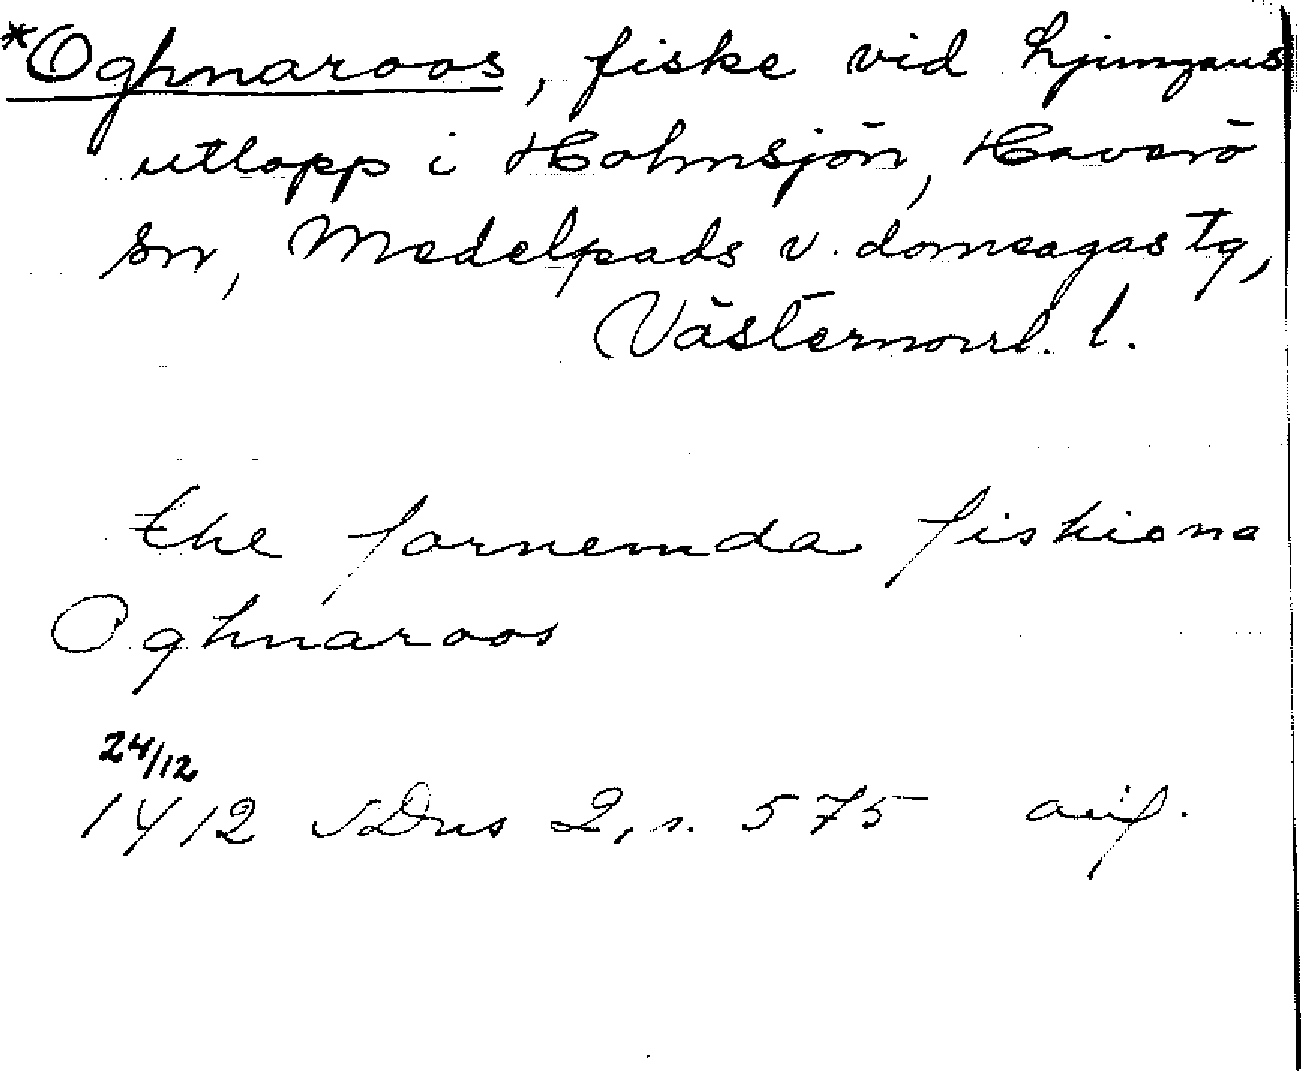 *Oghnaroos, fiske vid Ljungans
utlopp i Holmsjön, Haverö
sn, Medelpads v. domsagas tg,
Västernorrl. l.
the fornemda fiskiona
Oghnaroos
24/12
1412 SDns 2, s. 575